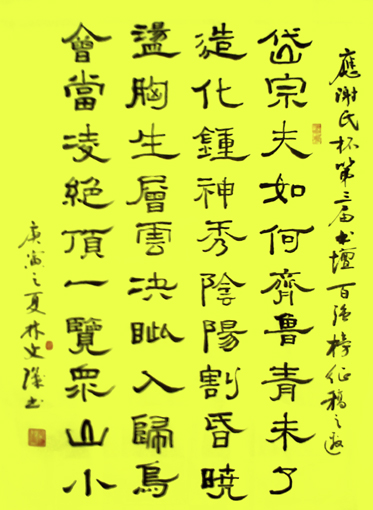 應謝氏杯第三届書壇百强榜征稿之邀
岱宗夫如何齊魯青未了
造化鍾神秀陰陽割昏曉
盪胸生層雲決眦入歸鳥
會當凌絕頂一覽眾山小
庚寅之夏林史 書